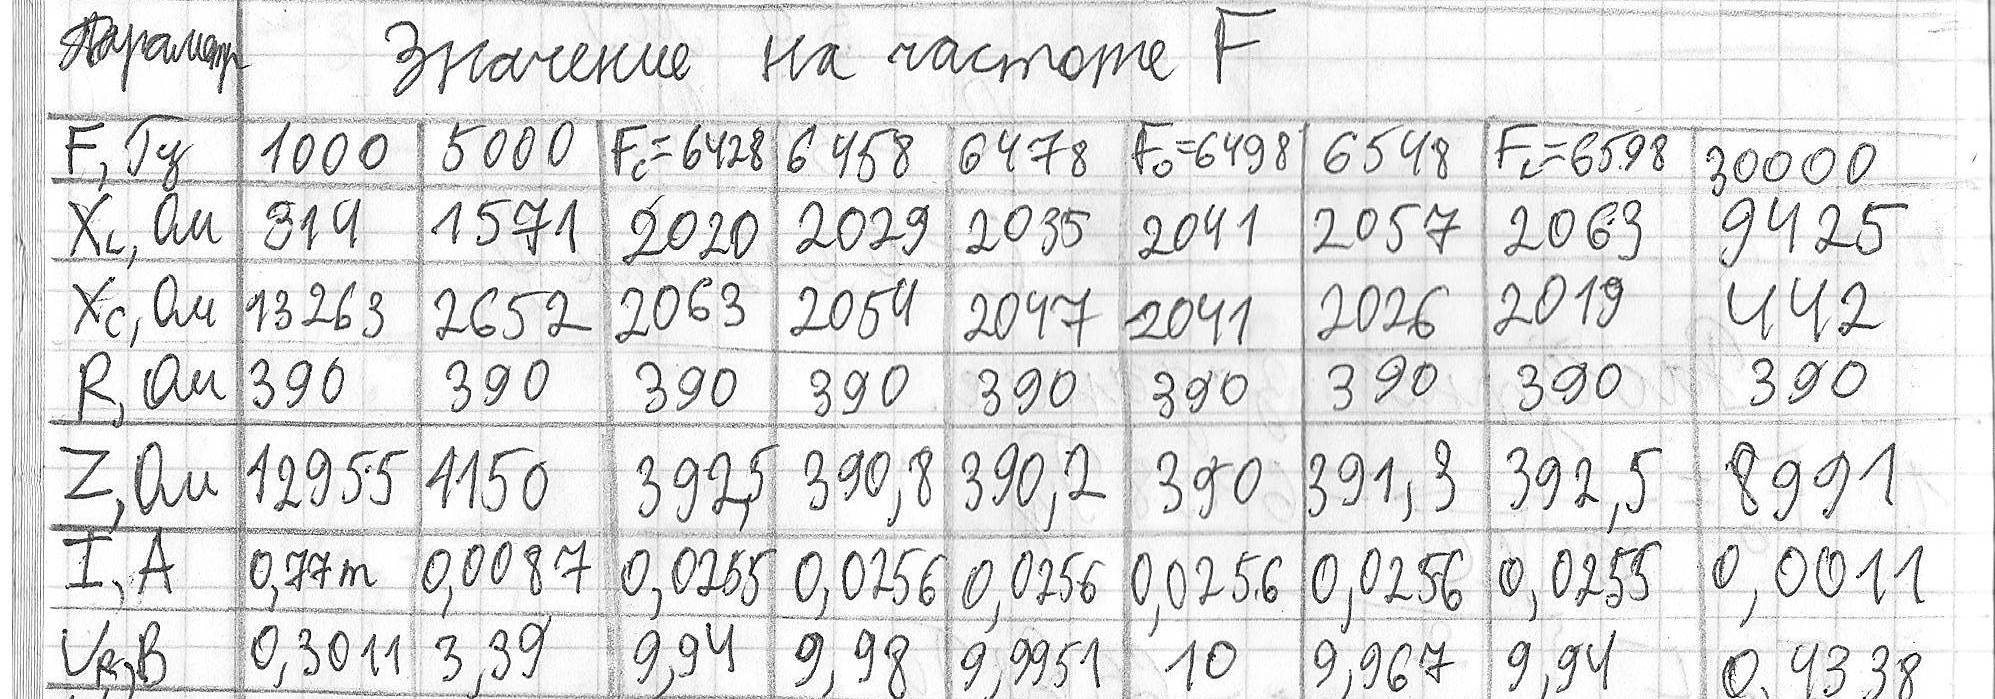 Параметр Значение на частоте F
F, Гц 1000 5000 Fc=6428 6458 6478 F0=6498 6548 FL=6598 30000
XL, Ом 314 1571 2020 2029 2035 2041 2057 2063 9425
XC, Ом 13263 2652 2063 2054 2047 2041 2026 2019 442
R, Ом 390 390 390 390 390 390 390 390 390
Z, Ом 12955 1150 392,5 390,8 390,2 390 391,3 392,5 8991
I, А 0,77m 0,0087 0,0255 0,0256 0,0256 0,0256 0,0256 0,0255 0,0011
UR, В 0,3011 3,39 9,94 9,98 9,9951 10 9,967 9,94 0,4338